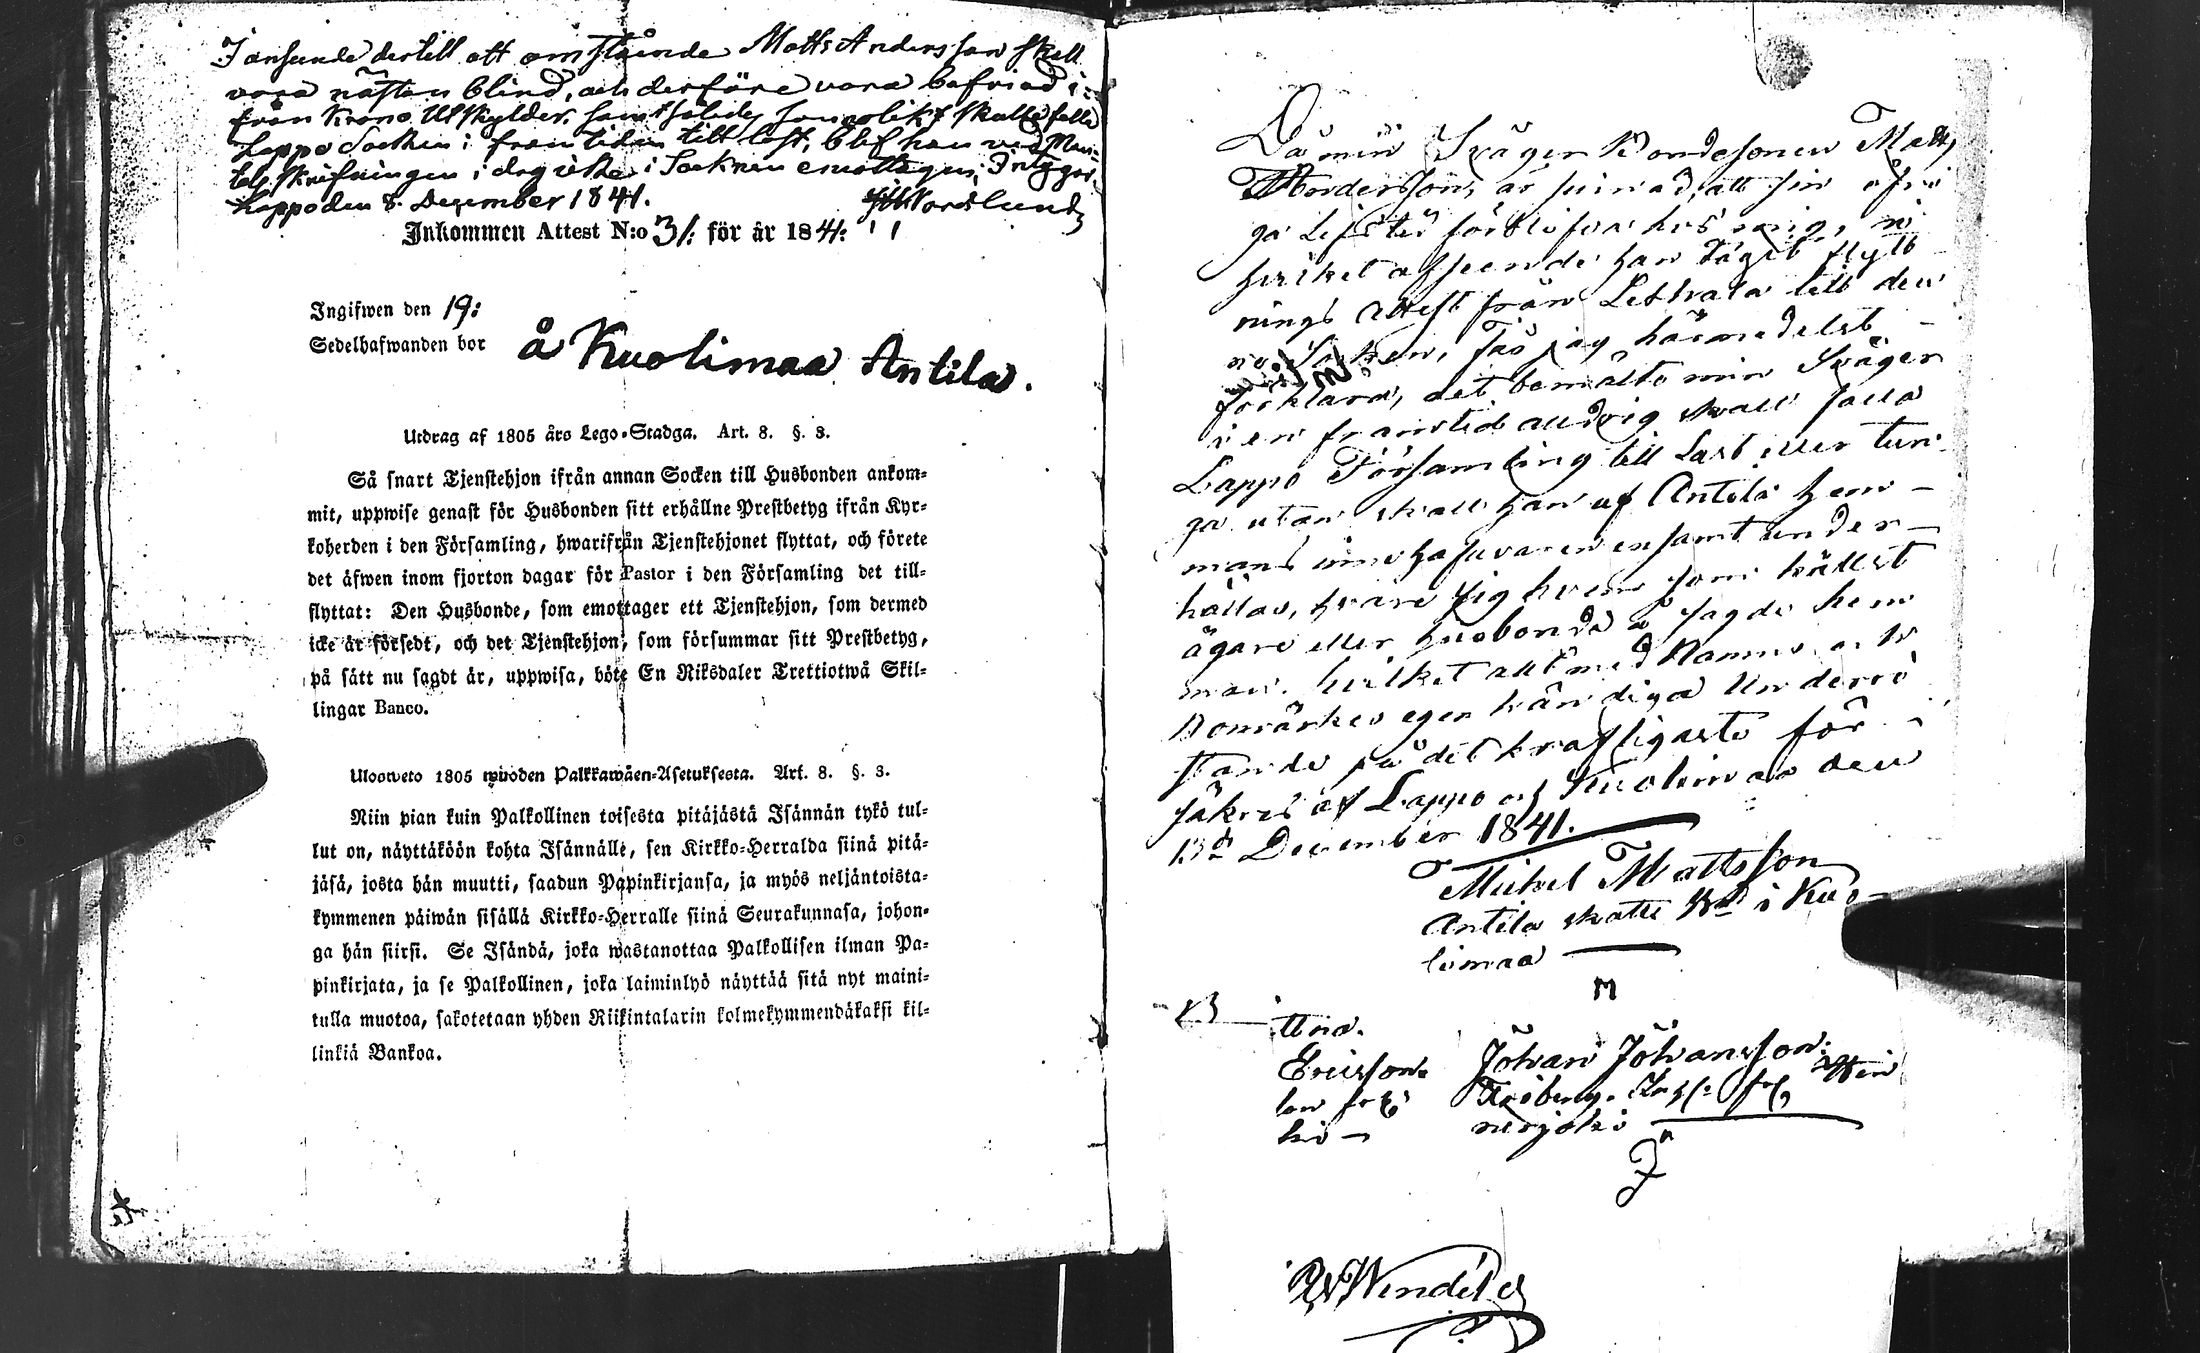 I anseende dertill att omstående Matts Andersson skall
vara nästan blind, och derföre vara befriad i-
från Krono Utskylder, samt således sannolikt skulle falla
Lappo Socken i framtiden till last, blef han vid Man-
tals skrifningen i dag icke i Socknen emottagen, Intygar
Lappo den 8. December 1841. Nordlund
Inkommen Attest N:o 31: för år 1841:
Ingifwen den 19:
Sedelhafwanden bor å Kuolimaa Antila.
Utdrag af 1805 års Lego-Stadga. Art. 8. §. 3.
Så snart Tjenstehjon ifrån annan Socken till Husbonden ankom-
mit, uppwise genast för Husbonden sitt erhållne Prestbetyg ifrån Kyr-
koherden i den Församling, hwarifrån Tjenstehjonet flyttat, och förete
det äfwen inom fjorton dagar för Pastor i den Församling det till-
flyttat: Den Husbonde, som emottager ett Tjenstehjon, som dermed
icke är försedt, och det Tjenstehjon, som försummar sitt Prestbetyg,
på sätt nu sagdt är, uppwisa, böte En Riksdaler Trettiotwå Skil-
lingar Banco.
Ulosweto 1805 wuoden Palkkawäen-Asetuksesta. Art. 8. §. 3.
Niin pian kuin Palkollinen toisesta pitäjästä Isännän tykö tul-
lut on, näyttäköön kohta Isännälle, sen Kirkko-Herralda siinä pitä-
jäsä, josta hän muutti, saadun Papinkirjansa, ja myös neljäntoista-
kymmenen päiwän sisällä Kirkko-Herralle siinä Seurakunnasa, johon-
ga hän siirsi. Se Isändä, joka wastanottaa Palkollisen ilman Pa-
pinkirjata, ja se Palkollinen, joka laiminlyö näyttää sitä nyt maini-
tulla muotoa, sakotetaan yhden Riikintalarin kolmekymmendäkaksi kil-
linkiä Bankoa.
Då min Sväger Bondesonen Matts
Andersson, är sinnad, att sin öfri
ga Lifstid förblifva hos mig, i
hvilket afseende han tagit flytt
nings attest från Lethala till den
na Socken, Får jag härmedelst
förklara, det bemälte min Sväger
i en framtid alldrig skall falla
Lappo Församling till Last eller tun
ga utan skall han af Antila hem-
mans innehafvaren ensamt under-
hållas, hvare sig hvem som hällst
ägare eller husbonde å sagde hem
man. hvilket allt med Namns och
Bomärkes egen händiga Underri
stande på det kraftigaste för-
säkras af Lappo och Kuolimaa den
13de December 1841.
Mickel Mattsson
Antila skatte Bd i Kuo-
limaa
M
ttna.
Ericsson Johan Johansson
ki nerjoki
J
Wendelin